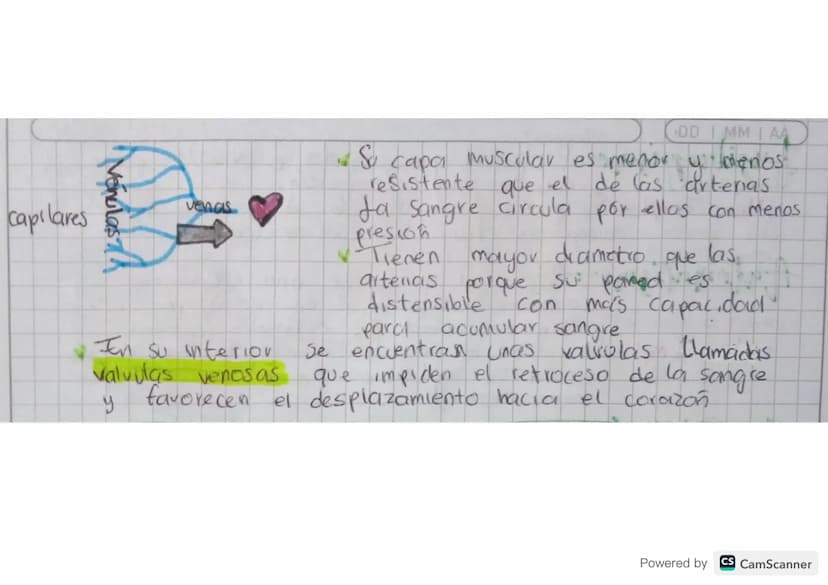 DD | MM | AA
Su capa muscular es menor y menos
resistente que el de las arterias
La sangre circula por ellos con menos
presión
capilares
Vénulas
venas
Tienen mayor diametro que las
arterias porque su pared es
distensible con más capacidad
para acumular sangre
En su interior se encuentran unas valvulas llamadas
valvulas venosas que impiden el retroceso de la sangre
y favorecen el desplazamiento hacia el corazón
Powered by CS CamScanner